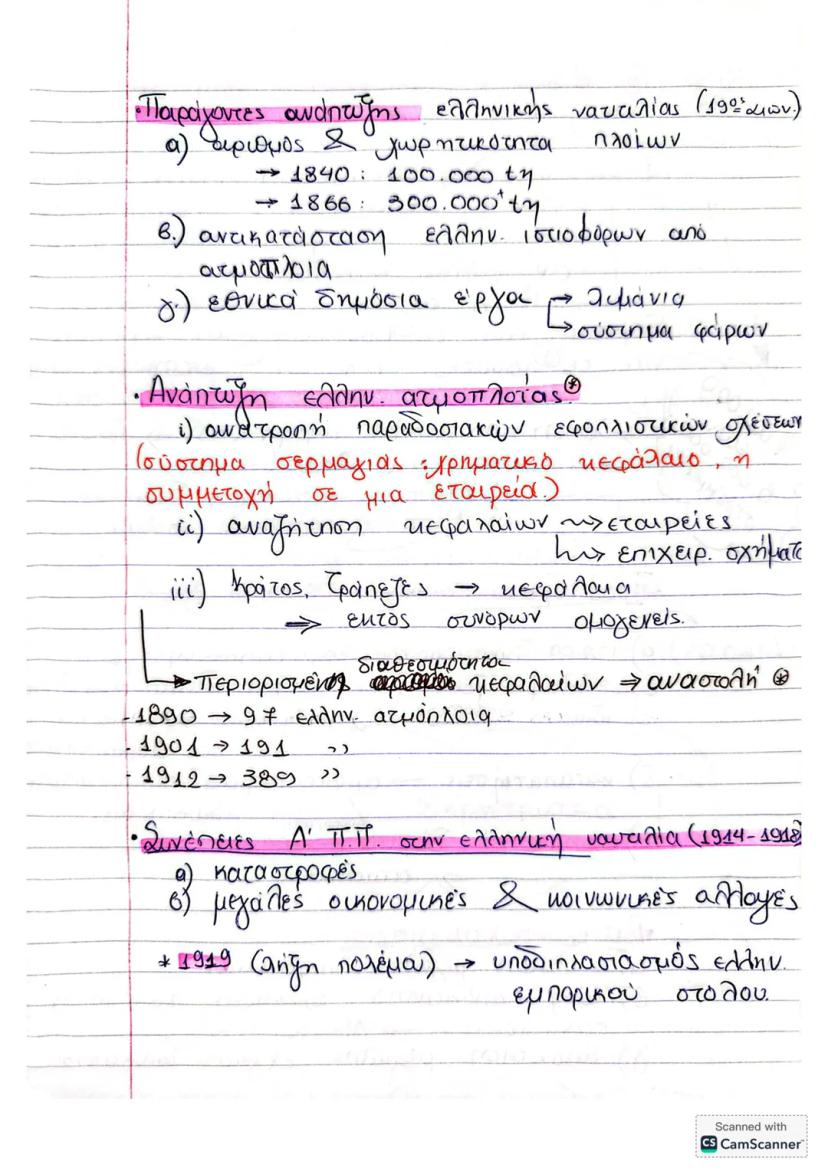 ·Παράγοντες ανάπτυξης ελληνικής ναυτιλίας (19ος αιων.)
α) αριθμός & χωρητικότητα πλοίων
→ 1840 : 100.000 τη
→ 1866 : 300.000+ τη
β.) αντικατάσταση ελλην. ιστιοφόρων από
ατμόπλοια
γ.) εθνικά δημόσια έργα → λιμάνια
→ σύστημα φάρων
· Ανάπτυξη ελλην. ατμοπλοΐας *
i) ανατροπή παραδοσιακών εφοπλιστικών σχέσεων
(σύστημα σερμαγιάς : χρηματικό κεφάλαιο, η
συμμετοχή σε μια εταιρεία.)
ii) αναζήτηση κεφαλαίων → εταιρείες
→ επιχειρ. σχήματα
iii) Κράτος, Τράπεζες → κεφάλαια
⇒ εκτός συνόρων ομογενείς.
διαθεσιμότητα
→ Περιορισμένη κεφαλαίων ⇒ αναστολή *
- 1890 → 97 ελλην. ατμόπλοια
- 1901 → 191 ,,
- 1912 → 389 ,,
· Συνέπειες Α' Π.Π. στην ελληνική ναυτιλία (1914-1918)
α) καταστροφές
β) μεγάλες οικονομικές & κοινωνικές αλλαγές
* 1919 (λήξη πολέμα) → υποδιπλασιασμός ελλην.
εμπορικού στόλου.
Scanned with
CS CamScanner